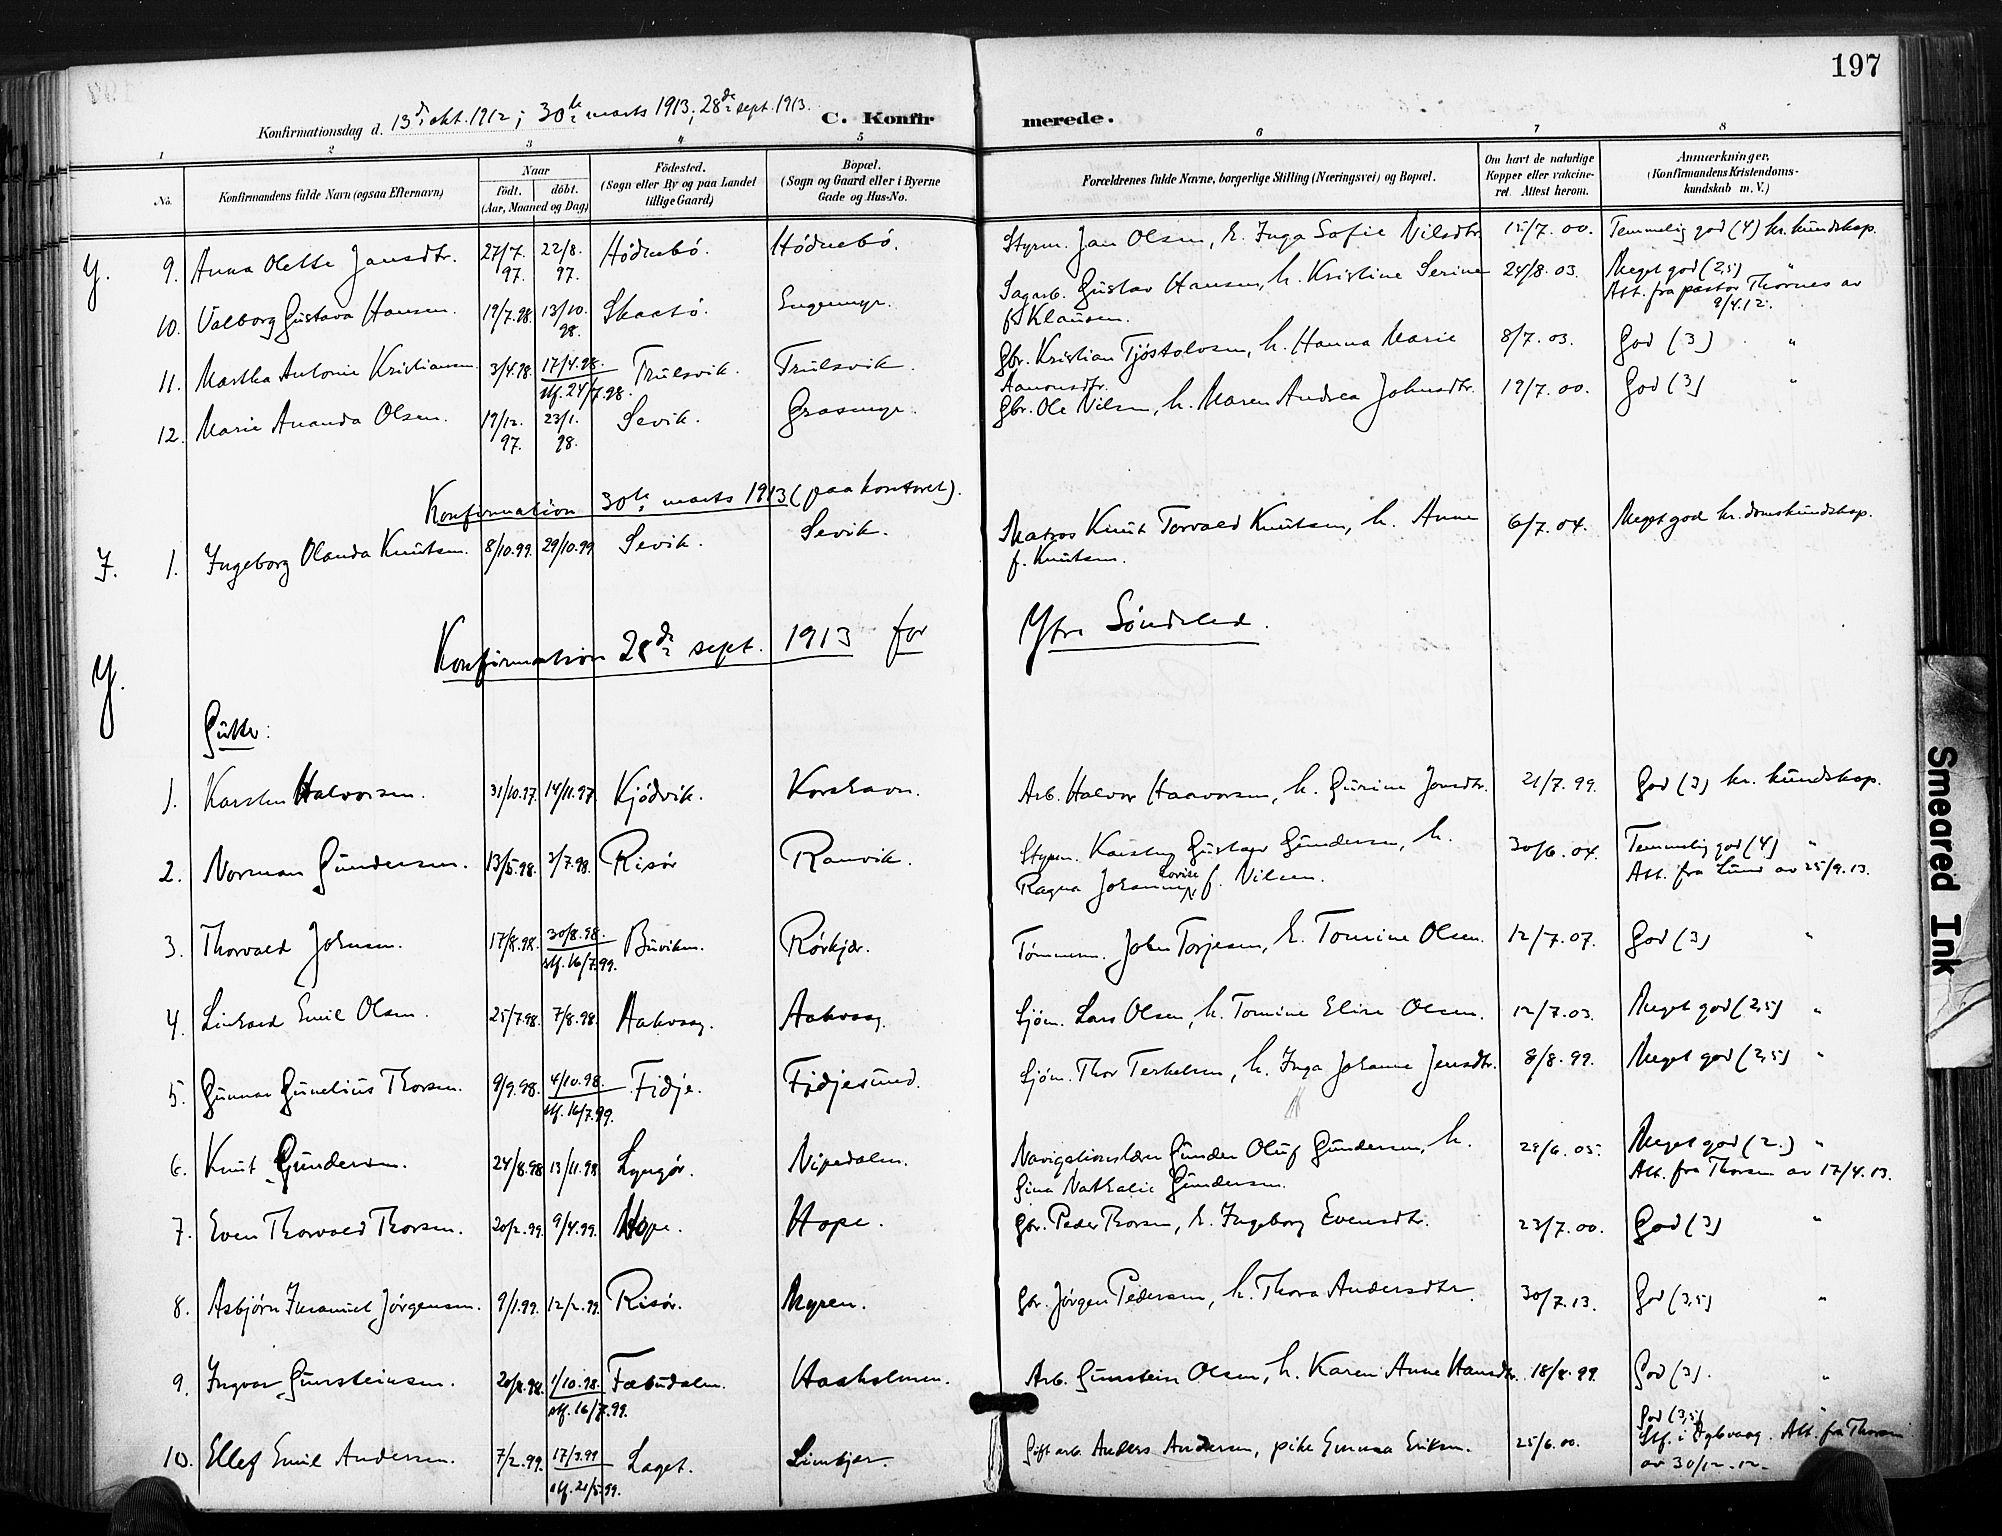 197
Konfirmationsdag d. 13de okt. 1912; 30te marts 1913; 28de sept. 1913.
C. Konfirmerede.
1 2 3 4 5 6 7 8
No. Konfirmandens fulde Navn (ogsaa Efternavn) Naar født. døbt. (Aar, Maaned og Dag) Fødested. (Sogn eller By og paa Landet tillige Gaard) Bopæl. (Sogn og Gaard eller i Byerne Gade og Hus-No. Forældrenes fulde Navne, borgerlige Stilling (Næringsvei) og Bopæl. Om havt de naturlige Kopper eller vakcineret. Attest herom. Anmærkninger, (Konfirmandens Kristendomskundskab m. V.)
Y. 9. Anna Olette Jansdtr. 27/7. 97. 22/8. 97. Hødnebø. Hødnebø. Styrm. Jan Olsen, h. Inga Sofie Nilsdtr. 15/7. 00. Temmelig god (4) kr. kundskap.
10. Valborg Gustava Hansen. 19/7.98. 13/10. 98. Skaatø. Engemyr. Sagarb. Gustav Hansen, h. Kristine Serine f. Klausen. 24/8. 03. Meget god (2,5) " Att. fra pastor Thornes av 9/4.12.
11. Martha Antonie Kristiansen. 3/4.98. 17/4.98. stf. 24/7.98. Trulsvik. Trulsvik. Gbr. Kristian Tjøstolvsen, h. Hanna Marie Aanonsdtr. 8/7. 03. God (3) "
12. Marie Ananda Olsen. 19/12. 97. 23/1. 98. Sevik. Grasmyr. Gbr. Ole Nilsen, h. Maren Andrea Johnsdtr. 19/7. 00. God (3) "
Konfirmation 30te marts 1913 (paa kontoret).
I. 1. Ingeborg Olanda Knutsen. 8/10.99. 29/10.99 Sevik. Sevik. Matros Knut Torvald Knutsen, h. Anne f. Knutsen. 6/7. 04. Meget god kr.domskundskap.
Y. Konfirmation 28de sept. 1913 for Ytre Søndeled.
Gutter:
1. Karsten Halvorsen. 31/10.97. 14/11.97. Kjødvik. Korshavn. Arb. Halvor Haavorsen, h. Gurine Jonsdtr. 21/7. 99. God (3) kr. kundskap.
2. Norman Gundersen. 13/5.98. 3/7.98. Risør Ranvik. Styrm. Karsten Gustav Gundersen, h. Ragna Johanne Lovise f. Nilsen. 30/6. 04. Temmelig god (4) " Att. fra Lund av 25/9.13.
3. Thorvald Johnsen. 17/8.98. 30/8.98. stf. 16/7.99. Buviken. Rørkjær. Tømmerm. John Torjesen, h. Tomine Olsen. 12/7. 07. God (3) "
4. Linkard Emil Olsen. 25/7.98. 7/8.98. Aakvaag. Aakvaag. Sjøm. Lars Olsen, h. Tomine Elise Olsen. 12/7. 03. Meget god (2,5) "
5. Gunnar Gunelius Thorsen. 9/9.98. 4/10.98. stf. 16/7.99. Fidje. Fidjesund. Sjøm. Thor Terkelsen, h. Inga Johanne Jensdtr. 8/8. 99. Meget god (2,5) "
6. Knut Gundersen. 24/8.98 13/11.98 Lyngør. Nipedalen. Navigationslærer Gunder Oluf Gundersen, h. Gina Nathalie Gundersen. 29/6. 05. Meget god (2.) " Att. fra Thorsen av 17/4.13.
7. Even Thorvald Thorsen. 20/2.99. 9/4.99. Hope. Hope. Gbr. Peder Thorsen, h. Ingeborg Evensdtr. 23/7. 00. God (3) "
8. Asbjørn Imanuel Jørgensen. 9/1.99. 12/2.99. Risør. Myren. Gbr. Jørgen Pedersen, h. Thora Andersdtr. 30/7. 13. God (3,5) "
9. Ingvar Gunsteinsen. 20/8.98. 1/10.98. stf. 16/7.99. Fæbudalen. Haaholmen. Arb. Gunstein Olsen, h. Karen Anne Hansdtr. 18/8. 99. God (3). "
10. Ellef Emil Andersen. 7/2.99. 17/3.99 stf. 21/5.99. Laget. Limkjær. Gift arb. Anders Andersen, pike Gunnæ Eriksen. 25/6. 00. God (3,5) " Stf. i Dybvaag. Att. fra Thorsen av 30/12.12.
Smeared Ink